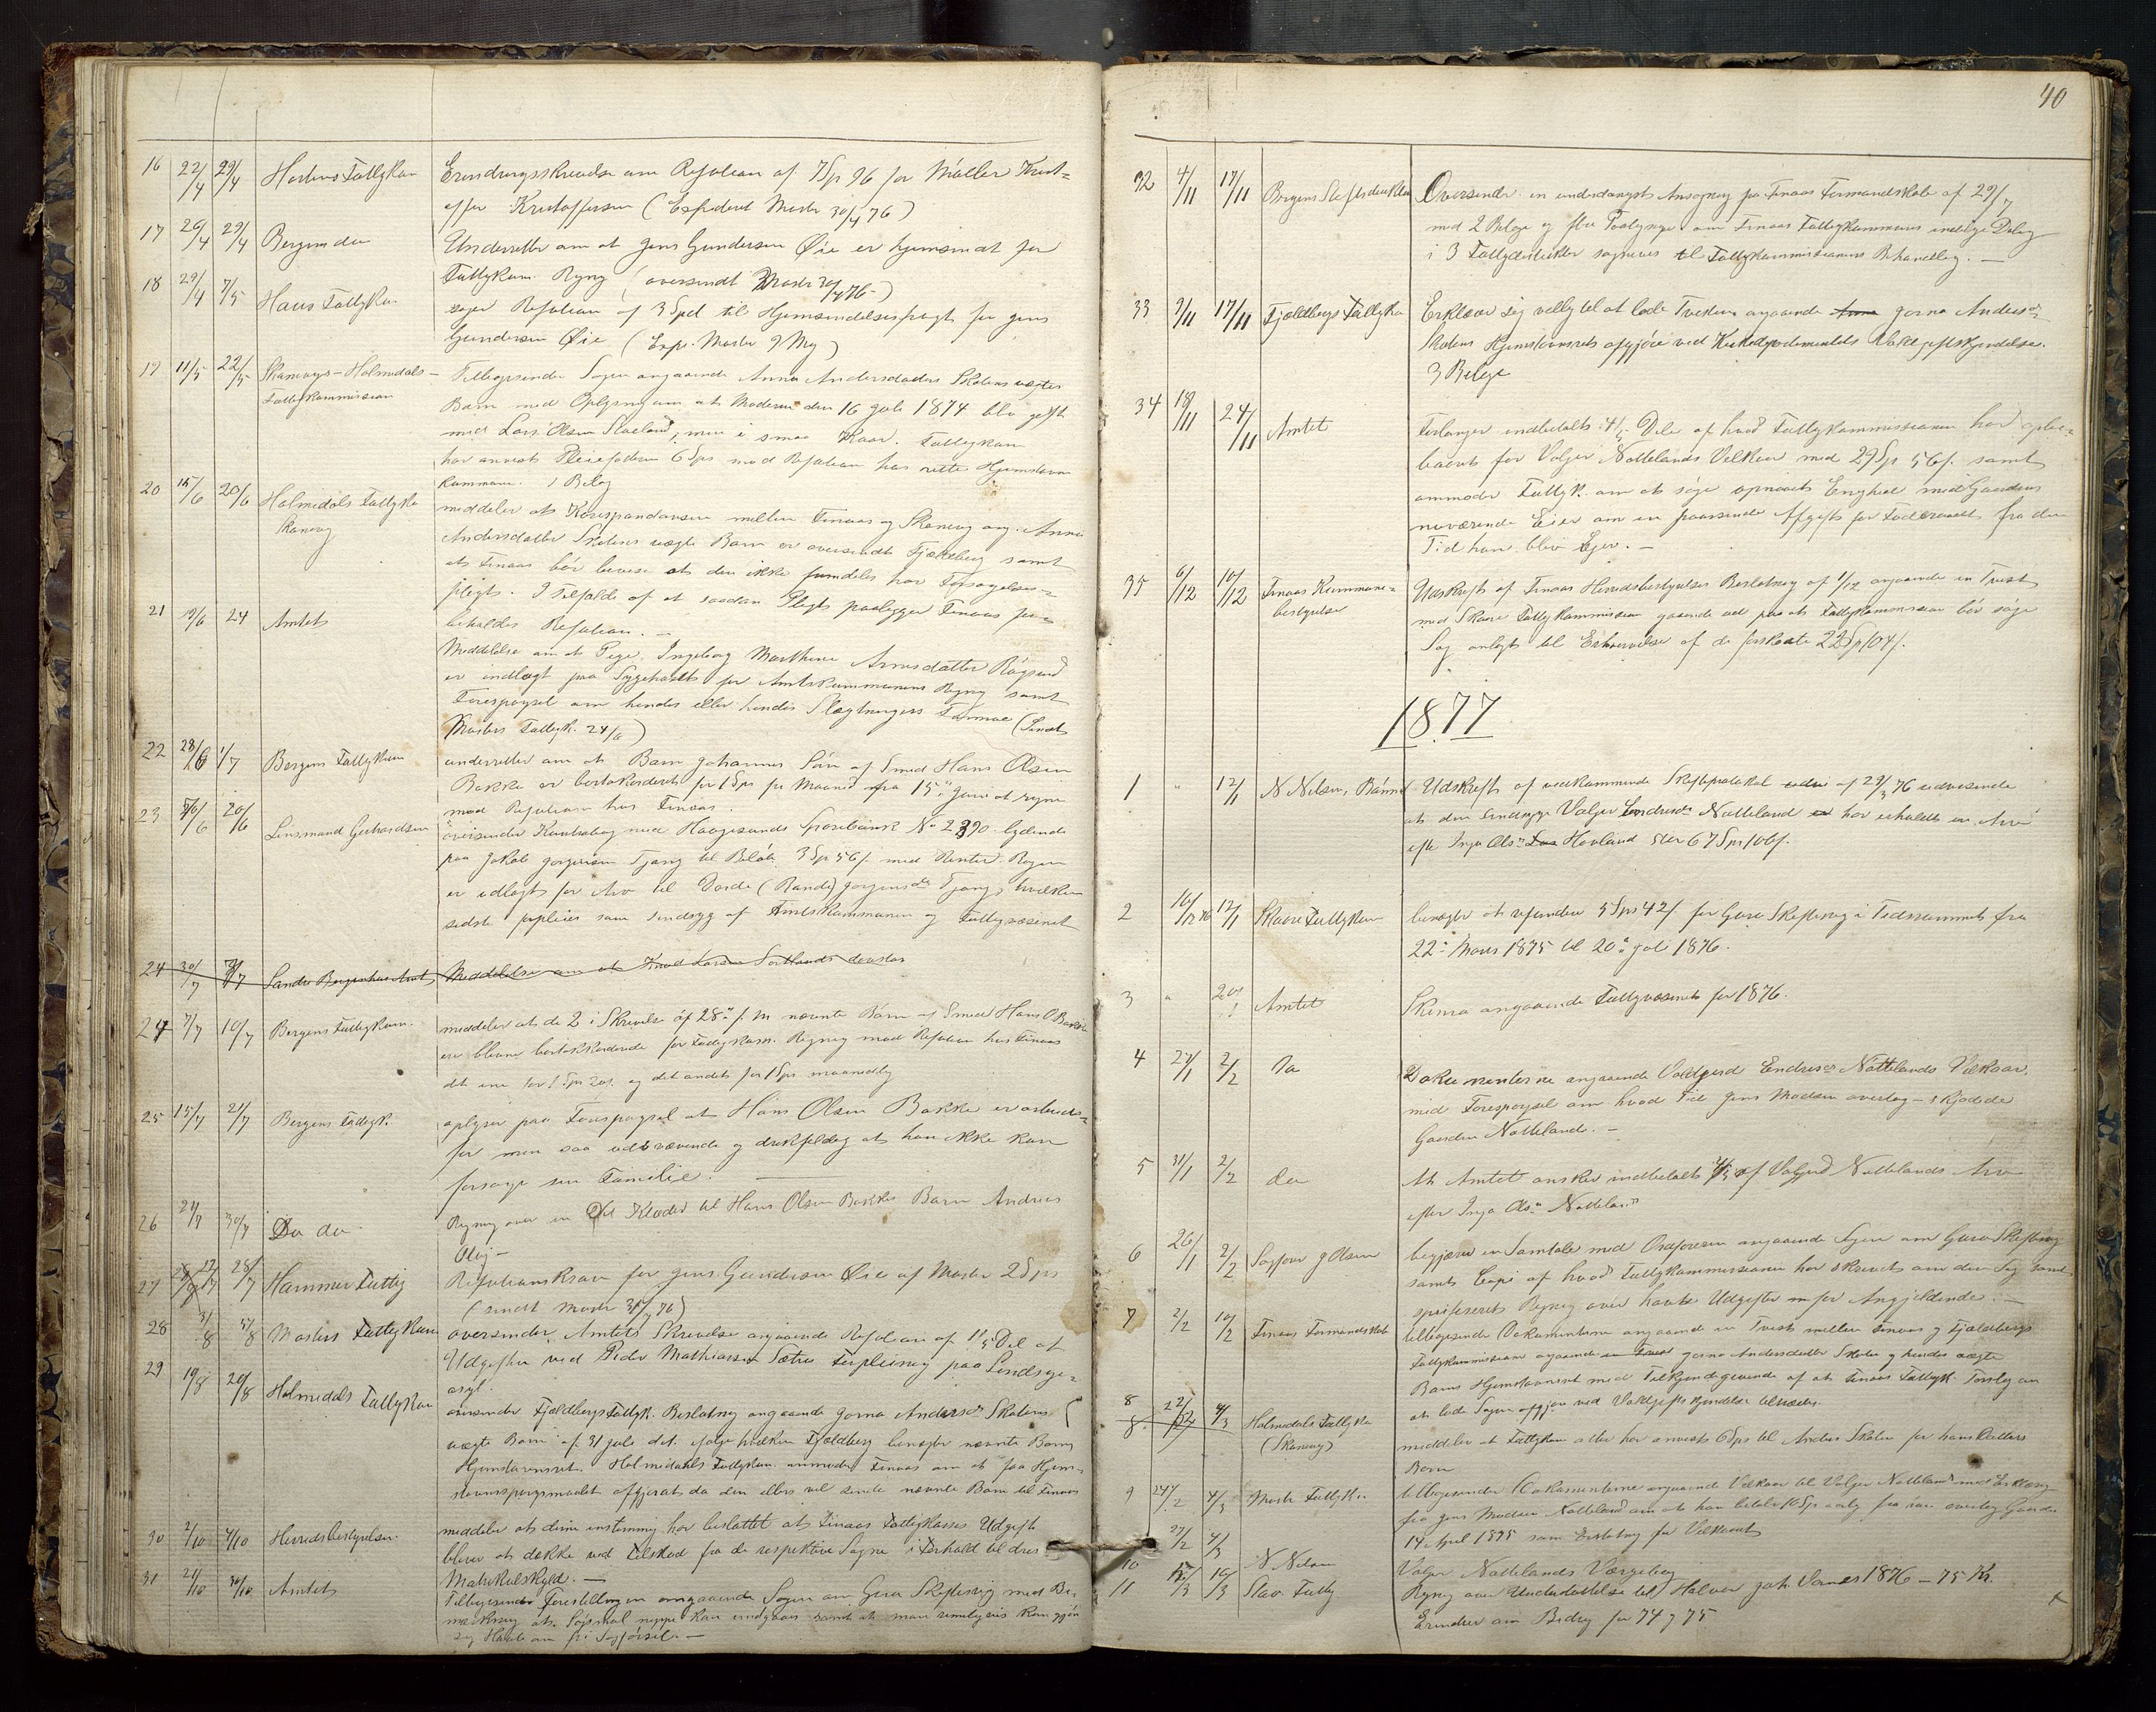 16 22/4 29/4 Mosters Fattigkom Erindringsskrivelse om Refusion af 7 Sp 96 for Møller Krist=
offer Kristoffersen (Expederet Moster 30/4 76)
17 26/4 29/4 Bergens do Underretter om at Jens Gundersen Øie er hjemsendt for
Fattigkom. Regng (oversendt Moster 30/4 76-)
18 29/4 7/5 Haus Fattigkom søger Refusion af 3 Spd til Hjemsendelsesfragt for Jens
Gundersen Øie (Exp. Moster 9 Maj)
19 11/5 22/5 Skanevigs-Holmedals- Fattigkommission Tilbagesender Sagen angaaende Anna Andersdatter Skolens uægte
Barn med Oplysning om at Moderen den 16 Juli 1874 blev gift
med Lars Olsen Staeland, men i smaa Kaar. Fattigkom
har anvist Pleiefaderen 6 Sps mod Refusion hos rette Hjemstavns
kommune. 1 Bilag
20 15/6 20/6 Holmedals Fattigko Skanevig meddeler at Korespondansen mellem Finaas og Skanevig ang. Anna
Andersdatter Skolens uægte Barn er oversendt Fjældberg samt
at Finaas bør bevise at den ikke fremdeles har Forsørgelses=
pligt. I Tilfælde af at saadan Pligt paalægges Finaas for=
beholdes Refusion. -
21 19/6 24 Amtet Meddelelse om at Pige Ingeborg Marthine Arnesdatter Røgsund
er indlagt paa Sygehuset for Amtskommunens Regng samt
Forespørgsel om hendes eller hendes Slægtningers Formue (Sendt
Mosters Fattigk. 24/6)
22 28/6 1/7 Bergens Fattigkom underretter om at Barn Johannes Søn af Smed Hans Olsen
Bakke er bortakorderet for 1 Sps per Maaned fra 15de Juni at regne
mod Refusion hos Finaas.
23 20/6 20/6 Lensmand Gerhardsen oversender Kontrabog med Haugesunds Sparebank No 2390 lydende
paa Jakob Jørgensen Tjong til Beløb 3 Sp 56 s. med Renter. Bogen
er udlagt for Arv til Dorde (Rande) Jørgensdtr Tjong, hvilken
sidste forpleies som sindsyg af Amtskommunen og Fattigvæsenet
24 30/7 7/7 Søndre Bergenhus Amt Meddelelse om at Knud Larsen Sortlands
24 7/7 10/7 Bergens Fattigkom. meddeler at de 2 i Skrivelse af 28de f. M nævnte Børn af Smed Hans O Bakke
ere blevne bortakkorderede for Fattigkom. Regng mod Refusion hos Finaas
det ene for 1 Sps 20 s. og det andet for 1 Sps maanedlig
25 15/7 21/7 Bergens Fattigk. oplyser paa Forespørgsel at Hans Olsen Bakke er arbeids=
før men saa udsvævende og drikfældig at han ikke kan
forsørge sin Familie.
26 24/7 30/7 Do do Regng over en Del Klæder til Hans Olsen Bakkes Barn Andreas
Olaj-
27 28/7 Hammer Fattig Refusionskrav for Jens Gundersen Øie af Moster 2 Sps
(sendt Moster 31/7 76)
28 3/8 5/8 Mosters Fattigkom oversender Amtets Skrivelse angaaende Refusion af 1/5 Del af
Udgifter ved Peder Mathiassen Sætres Forpleining paa Sindsyge=
asyl.
29 19/8 20/8 Holmedals Fattigkom oversender Fjældbergs Fattigk. Beslutning angaaende Jorna Andersdr Skolens
uægte Barn af 31 Juli d.A. ifølge hvilken Fjældberg benægter nævnte Barns
Hjemstavnsret. Holmedals Fattigkom. anmoder Finaas om at faa Hjem=
stavnsspørgsmaalet afgjort da den ellers vil sende nævnte Barn til Finaas
30 2/10 4/10 Herredsbestyrelsen meddeler at denne enstemmig har besluttet at Finaas Fattigkasses Udgift
bliver at dække ved Tilskud fra de respektive Sogne i Forhold til deres
Matrikulskyld. -
31 21/10 30/10 Amtet Tilbagesender Forestillingen angaaende Sagen om Guro Skeftesvig med Be=
mærkning at Søgsmaal neppe kan undgaaes samt at man rimeligvis kan gjøre
sig Haab om fri Sagførsel. -
40
32 4/11 17/11 Bergens Stiftsdirektion Oversender en underdanigst Ansøgning fra Finaas Formandskab af 29/7
med 2 Bilage og flere Paategninger om Finaas Fattigkommunes endelige Deling
i 3 Fattigdistrikter sognevis til Fattigkommissionens Behandling. -
33 9/11 17/11 Fjældbergs Fattigko Erklærer sig villig til at lade Tvisten angaaende Jorna Andersdr
Skolens Hjemstavnsret afgjøre ved Kirkedepartementets Voldgiftskjendelse.
3 Bilage
34 18/11 24/11 Amtet Forlanger indbetalt 4/5 Dele af hvad Fattigkommissionen har opbe=
baaret for Valger Nottelands Vilkaar med 29 Sp 56 s. samt
anmoder Fattigk. om at søge opnaaet Enighed med Gaardens
nuværende Eier om en passende Afgift for Føderaadet fra den
Tid han blev Ejer. -
35 6/12 10/12 Finaas Kommune= bestyrelse Udskrift af Finaas Herredsbestyrelses Beslutning af 1/12 angaaende en Tvist
med Skaare Fattigkommission gaaende ud paa at Fattigkommissionen bør søge
Sag anlagt til Erhvervelse af de forskudte 22 Sp 104 s.
1877
1 " 12/1 N Nilsen, Børnnes Udskrift af vedkommende Skifteprotokol af 23/3 76 udvisende
at den sindsyge Valger Endresdr Notteland har erholdt en Arv
efter Inga Olsdr Hovland stor 67 Sps 106 s.
2 16/12 76 12/1 Skaare Fattigkom benægter at refundere 5 Sps 42 s. for Guro Skeftesvig i Tidsrummet fra
22de Mars 1875 til 20de Juli 1876.
3 " 20/1 Amtet Skema angaaende Fattigvæsenet for 1876.
4 27/1 2/2 Do Dokumenterne angaaende Valdgerd Endresdr Nottelands Vilkaar
med Forespørgsel om hvad Tid Jens Madsen overtog - skjødede
Gaarden Notteland. -
5 31/1 2/2 do At Amtet ønsker indbetalt 4/5 af Valgerd Nottelands Arv
efter Inga Olsdr Notteland
6 26/1 2/2 Sagfører J Olsen begjærer en Samtale med Ordføreren angaaende Sagen om Guro Skeftesvig
samt Copi af hvad Fattigkommissionen har skrevet om den Sag samt
spesifiseret Regning over havte Udgifter for Angjeldende. -
7 2/2 10/2 Finaas Formandskab tilbagesender Dokumenterne angaaende en Tvist mellem Finaas og Fjældbergs
Fattigkommission angaaende Jorna Andersdatter Skolen og hendes uægte
Barns Hjemstavnsret med Tilkjendegivende af at Finaas Fattigk. Forslag om
at lade Sagen afgjøre ved Voldgiftskjendelse tiltrædes.
8 22/2 4/3 Holmedals Fattigko (Skanevig) meddeler at Fattigkom atter har anvist 6 Sps til Anders Skolen for hans Datters
Barn
9 24/2 4/3 Moster Fattigko. tilbagesender Dokumenterne angaaende Vilkaar til Valger Notteland med Erklæring
fra Jens Madsen Notteland om at han betaler 16 Sp aarlig fra han overtog Gaarden
14 April 1875 som Erstatning for Vilkaaret
10 27/2 4/3 N Nilsen Valger Nottelands Værgebog
11 10/3 Stav. Fattig Regng over Understøttelse til Halvor Joh. Vanes 1876 - 75 Kr.
Erindrer om Bidrag for 74 og 75.